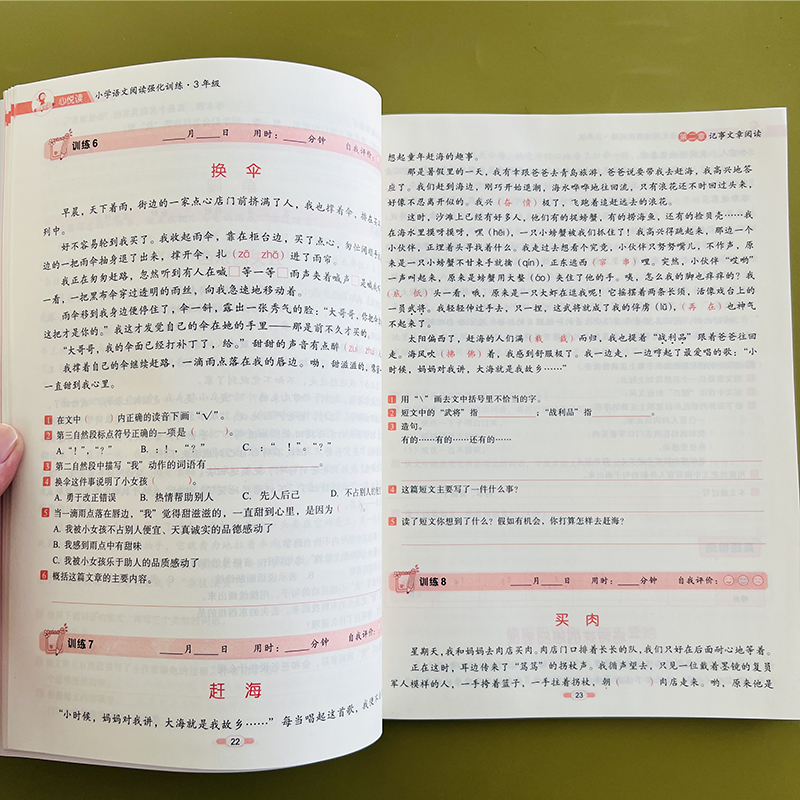 心悦读 小学语文阅读强化训练·3年级
训练6 ____月____日 用时:____分钟 自我评价:
换 伞
早晨,天下着雨,街边的一家点心店门前挤满了人,我也撑着伞,排在
列中。
好不容易轮到我买了。我收起雨伞,靠在柜台边,买了点心,匆忙
边的一把雨伞抽身退了出来,撑开伞,扎(zā zhā)进了雨帘。
我正在匆匆赶路,忽然听到有人在喊□等一等□雨声夹着喊声□
一看,一把黑布伞穿过透明的雨丝,向我急速地移动着。
雨伞移到我身边便停住了,伞一斜,露出一张秀气的脸:“大哥哥,
这把才是你的。”我这才发觉自己的伞在她的手里——那是前不久才买的。
“大哥哥,我的伞面已经打补丁了,给。”甜甜的声音有点醉(
我撑着自己的伞继续赶路,一滴雨点落在我的唇边。呦,甜滋滋的,
一直甜到我心里。
1 在文中( )内正确的读音下画“√”。
2 第三自然段标点符号正确的一项是( )。
A.“!”,“?” B.:!,“? C.:“ !”。“?”
3 第二自然段中描写“我”动作的词语有____________________。
4 换伞这件事说明了小女孩( )。
A. 勇于改正错误 B. 热情帮助别人 C. 先人后己 D. 不占别人的
5 当一滴雨点落在唇边,“我”觉得甜滋滋的,一直甜到心里,是因为( )。
A. 我被小女孩不占别人便宜、天真诚实的品德感动了
B. 我感到雨点中有甜味
C. 我被小女孩乐于助人的品质感动了
6 概括这篇文章的主要内容。
训练7 ____月____日 用时:____分钟 自我评价:
赶 海
“小时候,妈妈对我讲,大海就是我故乡……”每当唱起这首歌,我
22
第二章 记事文章阅读
想起童年赶海的趣事。
那是暑假里的一天,我有幸跟爸爸去青岛旅游,爸爸说要带我去赶海,我高兴地答
应了。我们赶到海边,刚巧开始退潮,海水哗哗地往回流,只有浪花还不时回过头来,
好像不愿离开似的。我兴(奋 偾)极了,飞跑着追赶远去的浪花。
这时,沙滩上已经有好多人,他们有的捉螃蟹,有的捞海鱼,还有的捡贝壳……我
在海水里摸呀摸呀,嘿(hēi),一只小螃蟹被我们抓住了!我高兴得跳起来,那边一个
小伙伴,正埋着头寻找着什么。我走过去想看个究竟,小伙伴只努努嘴儿,不作声,原
来是一只小螃蟹不甘束手就擒(qín),正东逃西(窜 串)哩。突然,小伙伴“哎哟”
一声叫起来,原来是螃蟹用大螯(áo)夹住了他的手。咦,怎么我的脚也痒痒的?我
(底 低)头一看,哦,原来是一只大虾在逗我呢!它摇摆着两条长须,活像戏台上的
一员武将。我轻轻伸过手去,只一捏,这武将就成了我的俘虏(lǔ),(再 在)也神气
不起来了。
太阳偏西了,赶海的人们满(载 栽)而归,我也提着“战利品”跟着爸爸往回
走。海风吹(拂 佛)着,我感到舒服极了。我一边走,一边哼起了最爱唱的歌:“小
时候,妈妈对我讲,大海就是我故乡……”
1 用“\”画去文中括号里不恰当的字。
2 短文中的“武将”指__________;“战利品”指__________。
3 造句。
有的……有的……还有的……
4 这篇短文主要写了一件什么事?
5 读了短文你想到了什么?假如有机会,你打算怎样去赶海?
训练8 ____月____日 用时:____分钟 自我评价:
买 肉
星期天,我和妈妈去肉店买肉。肉店门口排着长长的队,我们只好在后面耐心地等着。
正在这时,耳边传来了“笃笃”的拐杖声。我循声望去,只见一位戴着墨镜的复员
军人模样的人,一手挎着篮子,一手拄着拐杖,朝( )肉店走来。哟,原来他是
23